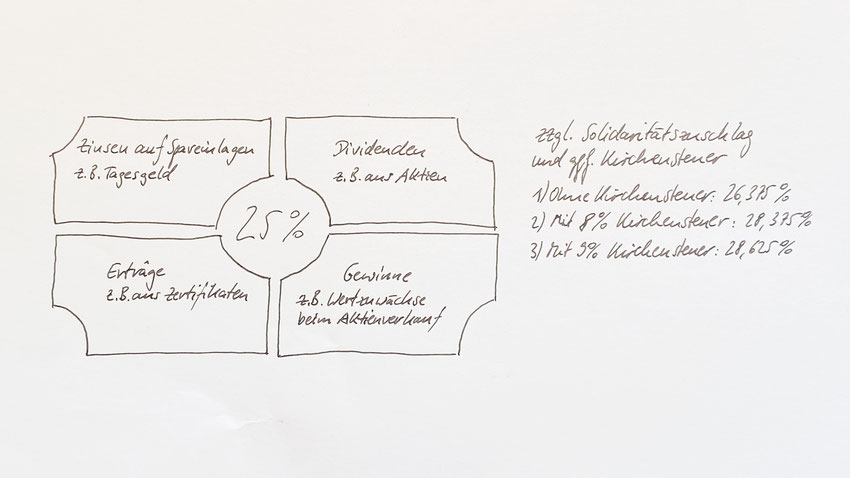 Zinsen auf Spareinlagen
z.B. Tagesgeld
Dividenden
z.B. aus Aktien
25%
Erträge
z.B. aus Zertifikaten
Gewinne
z.B. Wertzuwächse
beim Aktienverkauf
zzgl. Solidaritätszuschlag
und ggf. Kirchensteuer
1) Ohne Kirchensteuer: 26,375%
2) Mit 8% Kirchensteuer: 28,375%
3) Mit 9% Kirchensteuer: 28,625%